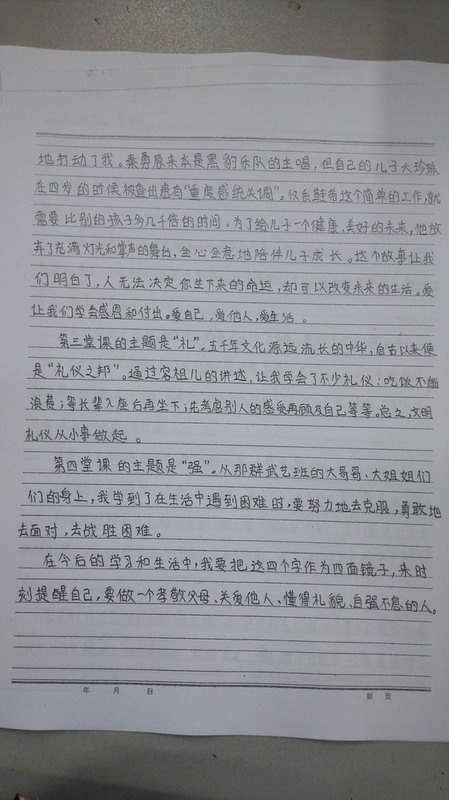 地打动了我。秦勇原来本是黑豹乐队的主唱,但自己的儿子大珍珠
在四岁的时候被查出患有“重度感统失调”。仅系鞋带这个简单的工作,就
需要比别的孩子多几千倍的时间。为了给儿子一个健康、美好的未来,他放
弃了充满灯光和掌声的舞台,全心全意地陪伴儿子成长。这个故事让我
们明白了,人无法决定你生下来的命运,却可以改变未来的生活。爱
让我们学会感恩和付出。爱自己,爱他人,爱生活。
第三堂课的主题是“礼”。五千年文化源远流长的中华,自古以来便
是“礼仪之邦”。通过容祖儿的讲述,让我学会了不少礼仪:吃饭不能
浪费;等长辈入座后再坐下;先考虑别人的感受再顾及自己等等。总之,文明
礼仪从小事做起。
第四堂课的主题是“强”。从那群武艺班的大哥哥、大姐姐们
们的身上,我学到了在生活中遇到困难时,要努力地去克服,勇敢地
去面对,去战胜困难。
在今后的学习和生活中,我要把这四个字作为四面镜子,来时
刻提醒自己,要做一个孝敬父母、关爱他人、懂得礼貌、自强不息的人。
年 月 日 第 页